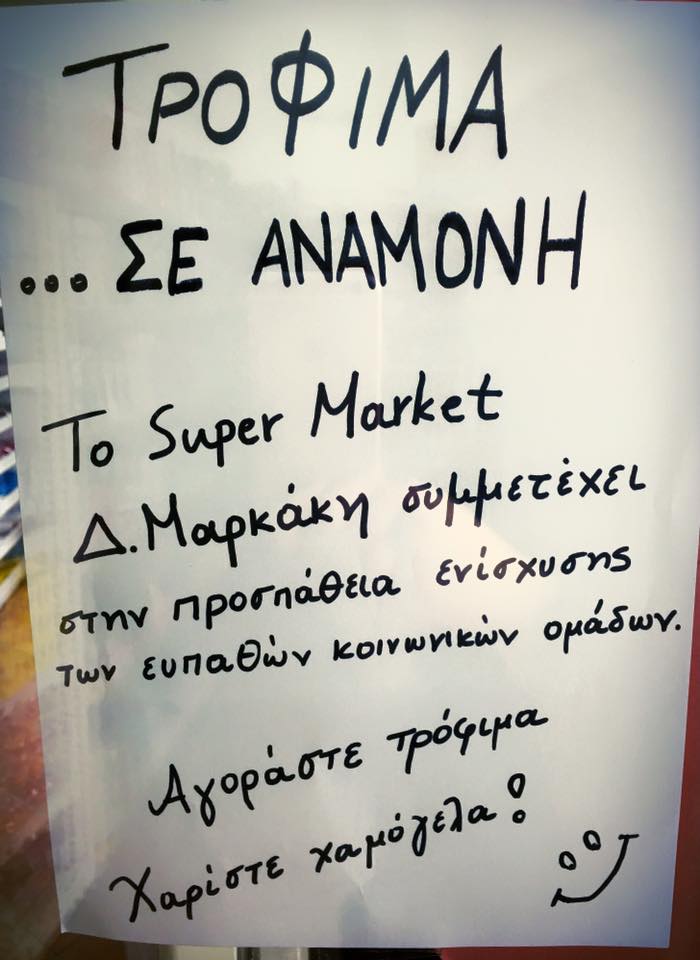 ΤΡΟΦΙΜΑ
...ΣΕ ΑΝΑΜΟΝΗ
Το Super Market
Δ.Μαρκάκη συμμετέχει
στην προσπάθεια ενίσχυσης
των ευπαθών κοινωνικών ομάδων.
Αγοράστε τρόφιμα
Χαρίστε χαμόγελα!